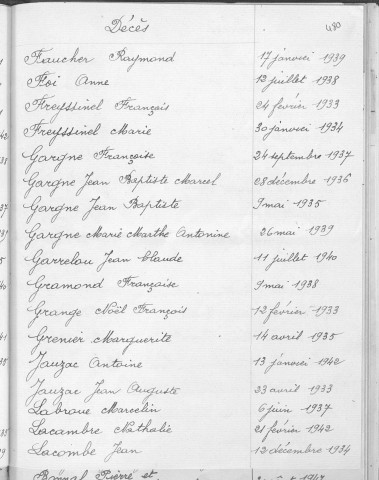 Décès
480
Faucher Raymond 17 janvier 1939
Foi Anne 12 juillet 1938
Freyssinel François 24 février 1933
Freyssinel Marie 30 janvier 1934
Gargne Françoise 24 septembre 1937
Gargne Jean Baptiste Marcel 28 décembre 1936
Gargne Jean Baptiste 9 mai 1935
Gargne Marie Marthe Antonine 26 mai 1939
Garrelou Jean Claude 11 juillet 1940
Gramond Françoise 9 mai 1938
Grange Noël François 12 février 1933
Grenier Marguerite 14 avril 1935
Jauzac Antoine 13 janvier 1942
Jauzac Jean Auguste 23 avril 1933
Labroue Marcelin 6 juin 1937
Lacambre Nathalie 21 février 1942
Lacombe Jean 12 décembre 1934
Pierre et